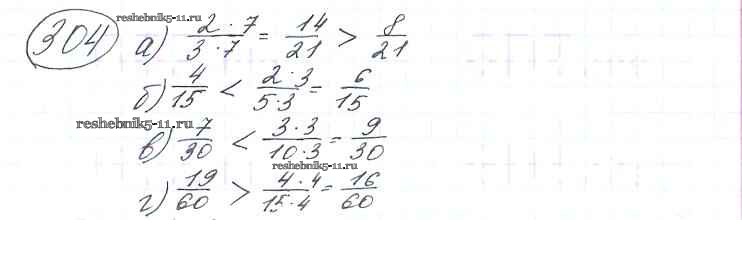 reshebnik5-11.ru
304 а) 2·7/3·7 = 14/21 > 8/21
б) 4/15 < 2·3/5·3 = 6/15
reshebnik5-11.ru
в) 7/30 < 3·3/10·3 = 9/30
reshebnik5-11.ru
г) 19/60 > 4·4/15·4 = 16/60